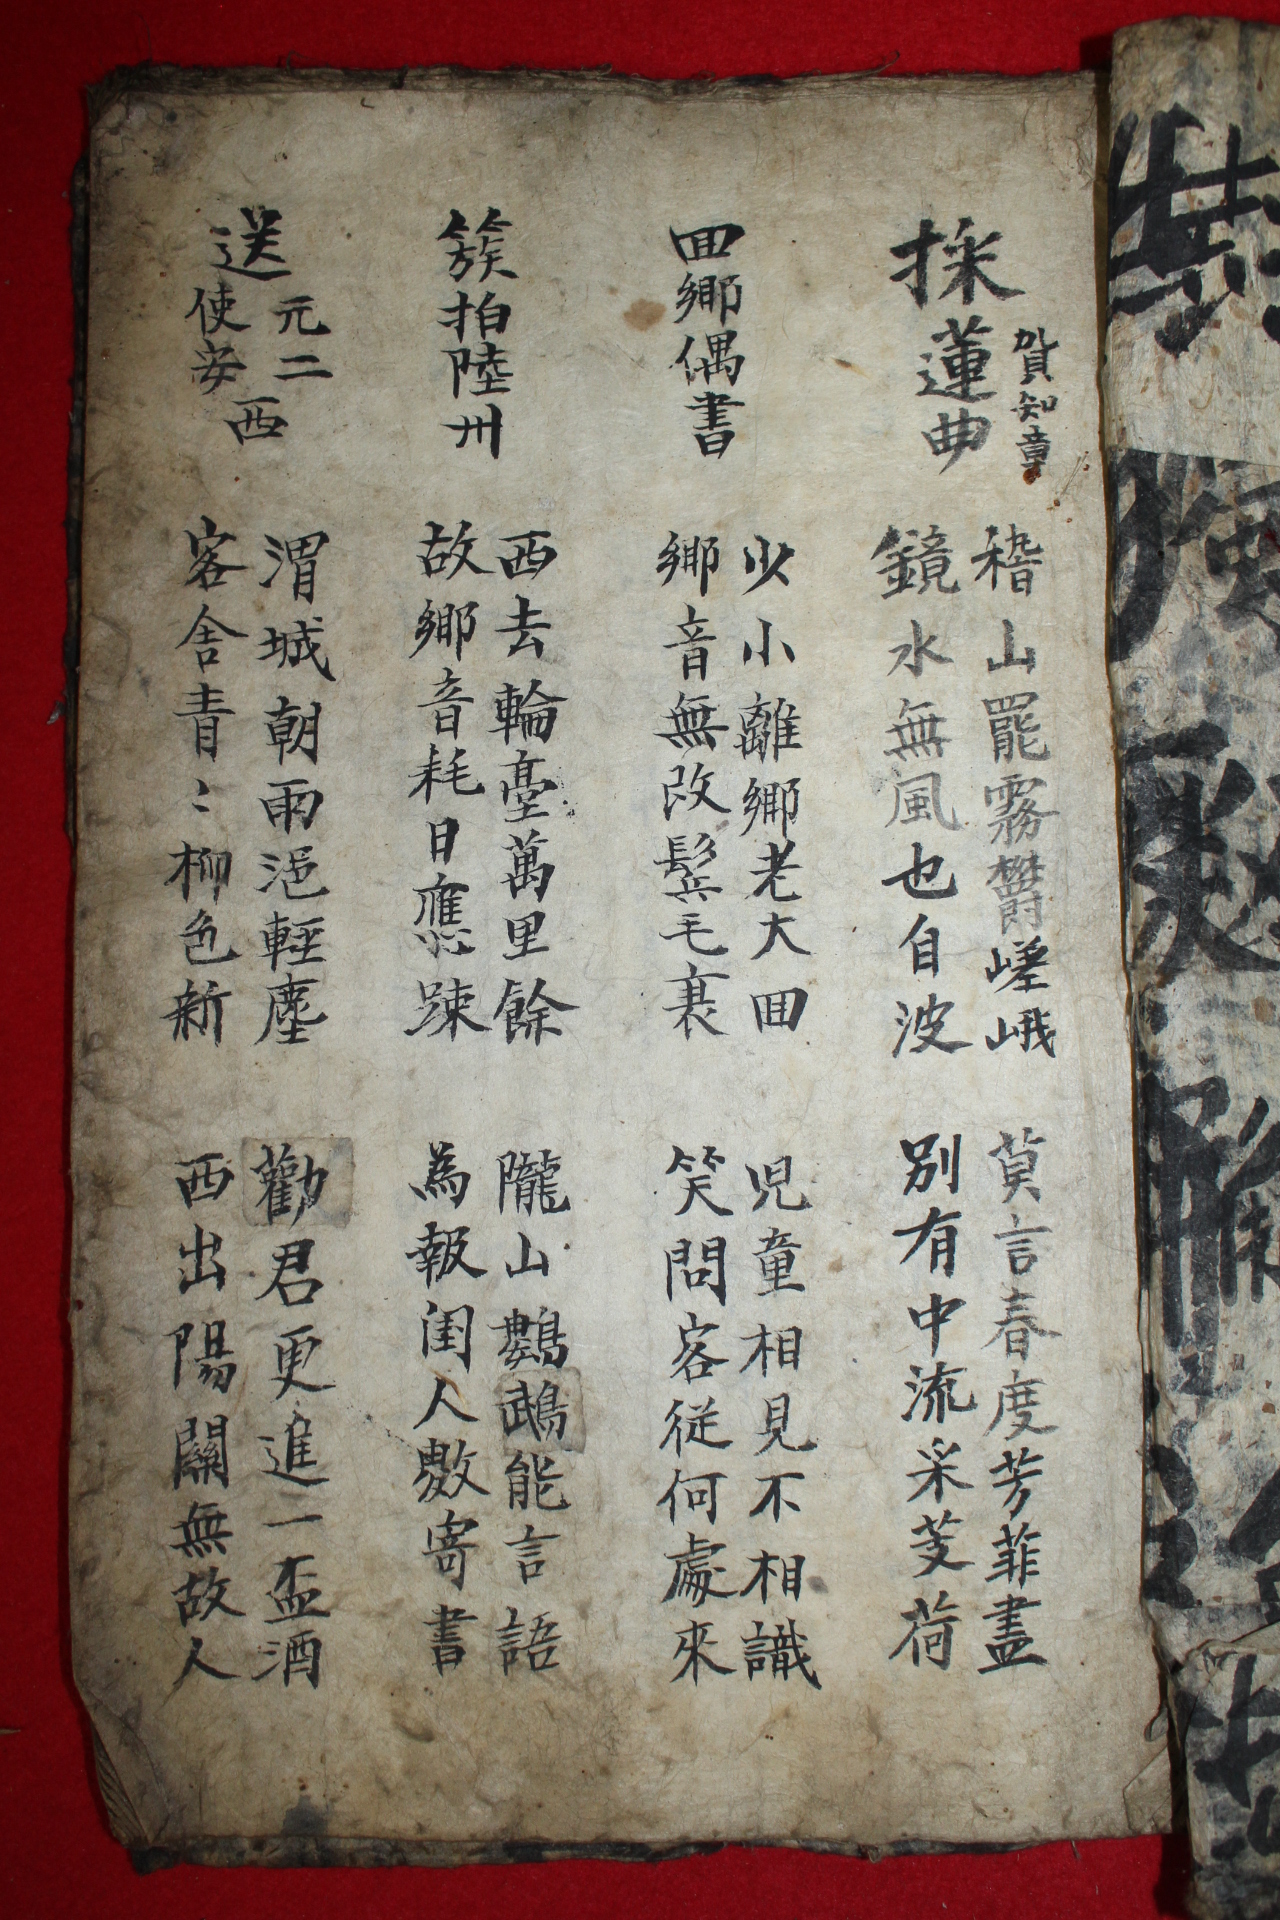 採蓮曲
賀知章
稽山罷霧欝嵯峨
鏡水無風也自波
莫言春度芳菲盡
別有中流采芰荷
囬鄉偶書
少小離鄉老大囬
鄉音無改鬂毛衰
児童相見不相識
笑問客従何處來
簇拍陸州
西去輪臺萬里餘
故鄉音耗日應踈
隴山鸚鵡能言語
為報閨人數寄書
送元二使安西
渭城朝雨浥輕塵
客舍青〻柳色新
勸君更進一盃酒
西出陽關無故人